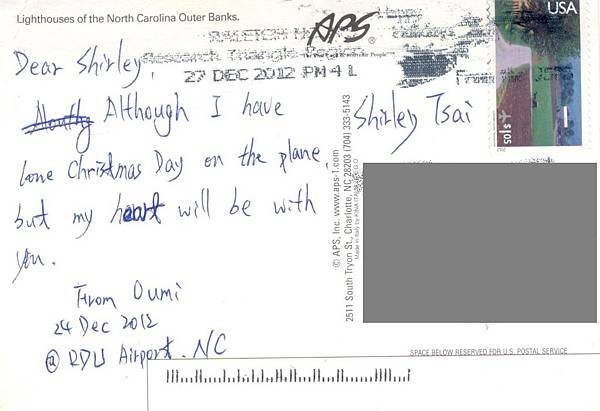 Lighthouses of the North Carolina Outer Banks.
APS
USA
Research Triangle Region
27 DEC 2012 PM 4 L
Dear Shirley,
Although I have
lone Christmas Day on the plane,
but my heart will be with
you.
From Oumi
24 Dec 2012
@ RDU Airport. NC
© APS, Inc. www.aps-1.com
2511 South Tryon St., Charlotte, NC 28203 (704) 333-5143
Made in Italy by
Shirley Tsai
SPACE BELOW RESERVED FOR U.S. POSTAL SERVICE